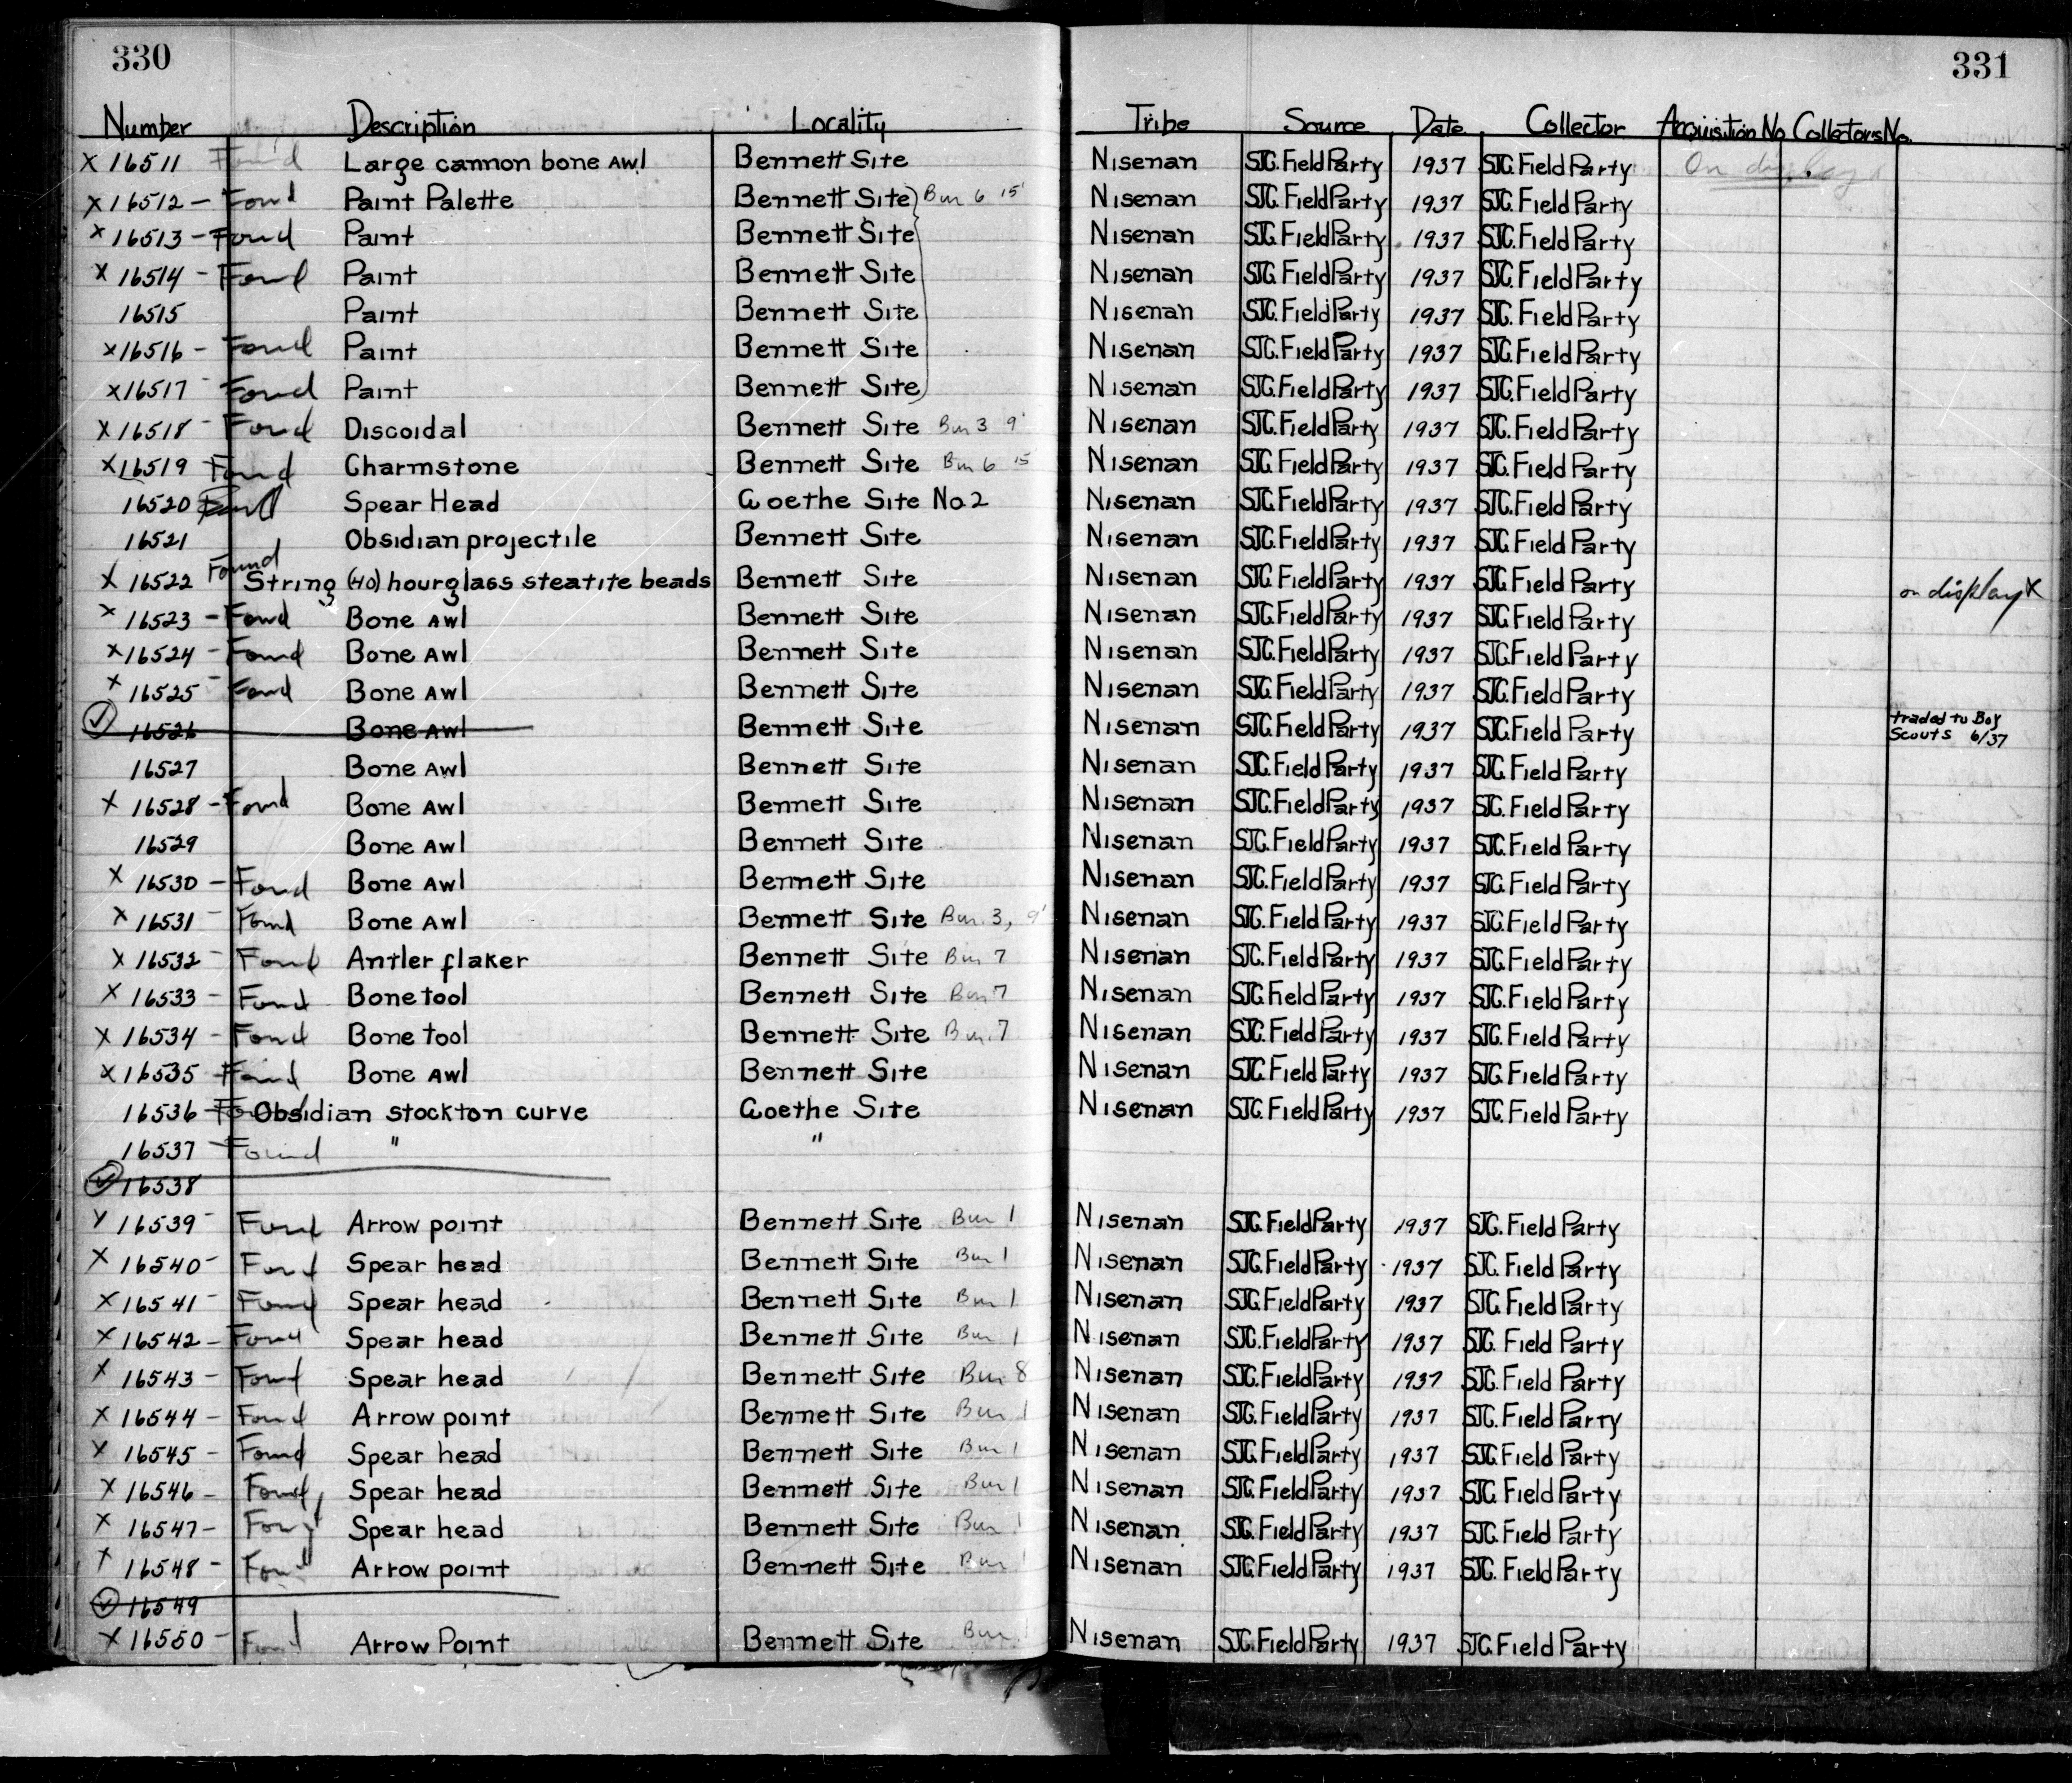 330
331
Number Description Locality Tribe Source Date Collector Acquisition No Collectors No.
X 16511 Found Large cannon bone AWl Bennett Site Nisenan SJC. Field Party 1937 SJC. Field Party On display
X 16512 - Found Paint Palette Bennett Site Bur 6 15' Nisenan SJC. Field Party 1937 SJC. Field Party
X 16513 - Found Paint Bennett Site Nisenan SJC. Field Party 1937 SJC. Field Party
X 16514 - Found Paint Bennett Site Nisenan SJC. Field Party 1937 SJC. Field Party
16515 Paint Bennett Site Nisenan SJC. Field Party 1937 SJC. Field Party
X 16516 - Found Paint Bennett Site Nisenan SJC. Field Party 1937 SJC. Field Party
X 16517 - Found Paint Bennett Site Nisenan SJC. Field Party 1937 SJC. Field Party
X 16518 - Found Discoidal Bennett Site Bur 3 9' Nisenan SJC. Field Party 1937 SJC. Field Party
X 16519 Found Charmstone Bennett Site Bur 6 15 Nisenan SJC. Field Party 1937 SJC. Field Party
16520 Spear Head Goethe Site No 2 Nisenan SJC. Field Party 1937 SJC. Field Party
16521 Obsidian projectile Bennett Site Nisenan SJC. Field Party 1937 SJC. Field Party
X 16522 Found String (40) hourglass steatite beads Bennett Site Nisenan SJC. Field Party 1937 SJC. Field Party on display X
X 16523 - Found Bone AWl Bennett Site Nisenan SJC. Field Party 1937 SJC. Field Party
X 16524 - Found Bone AWl Bennett Site Nisenan SJC. Field Party 1937 SJC. Field Party
X 16525 - Found Bone AWl Bennett Site Nisenan SJC. Field Party 1937 SJC. Field Party
✓ 16526 Bone AWl Bennett Site Nisenan SJC. Field Party 1937 SJC. Field Party traded to Boy
Scouts 6/37
16527 Bone AWl Bennett Site Nisenan SJC. Field Party 1937 SJC. Field Party
X 16528 - Found Bone AWl Bennett Site Nisenan SJC. Field Party 1937 SJC. Field Party
16529 Bone AWl Bennett Site Nisenan SJC. Field Party 1937 SJC. Field Party
X 16530 - Found Bone AWl Bennett Site Nisenan SJC. Field Party 1937 SJC. Field Party
X 16531 - Found Bone AWl Bennett Site Bur. 3, 9' Nisenan SJC. Field Party 1937 SJC. Field Party
X 16532 - Found Antler flaker Bennett Site Bur 7 Nisenan SJC. Field Party 1937 SJC. Field Party
X 16533 - Found Bone tool Bennett Site Bur 7 Nisenan SJC. Field Party 1937 SJC. Field Party
X 16534 - Found Bone tool Bennett Site Bur. 7 Nisenan SJC. Field Party 1937 SJC. Field Party
X 16535 - Found Bone AWl Bennett Site Nisenan SJC. Field Party 1937 SJC. Field Party
16536 - Found Obsidian stockton curve Goethe Site Nisenan SJC. Field Party 1937 SJC. Field Party
16537 - Found " "
✓ 16538
X 16539 - Found Arrow point Bennett Site Bur 1 Nisenan SJC. Field Party 1937 SJC. Field Party
X 16540 - Found Spear head Bennett Site Bur 1 Nisenan SJC. Field Party 1937 SJC. Field Party
X 16541 - Found Spear head Bennett Site Bur 1 Nisenan SJC. Field Party 1937 SJC. Field Party
X 16542 - Found Spear head Bennett Site Bur 1 Nisenan SJC. Field Party 1937 SJC. Field Party
X 16543 - Found Spear head Bennett Site Bur 8 Nisenan SJC. Field Party 1937 SJC. Field Party
X 16544 - Found Arrow point Bennett Site Bur 1 Nisenan SJC. Field Party 1937 SJC. Field Party
X 16545 - Found Spear head Bennett Site Bur 1 Nisenan SJC. Field Party 1937 SJC. Field Party
X 16546 - Found Spear head Bennett Site Bur 1 Nisenan SJC. Field Party 1937 SJC. Field Party
X 16547 - Found Spear head Bennett Site Bur 1 Nisenan SJC. Field Party 1937 SJC. Field Party
X 16548 - Found Arrow point Bennett Site Bur 1 Nisenan SJC. Field Party 1937 SJC. Field Party
✓ 16549
X 16550 - Found Arrow Point Bennett Site Bur 1 Nisenan SJC. Field Party 1937 SJC. Field Party